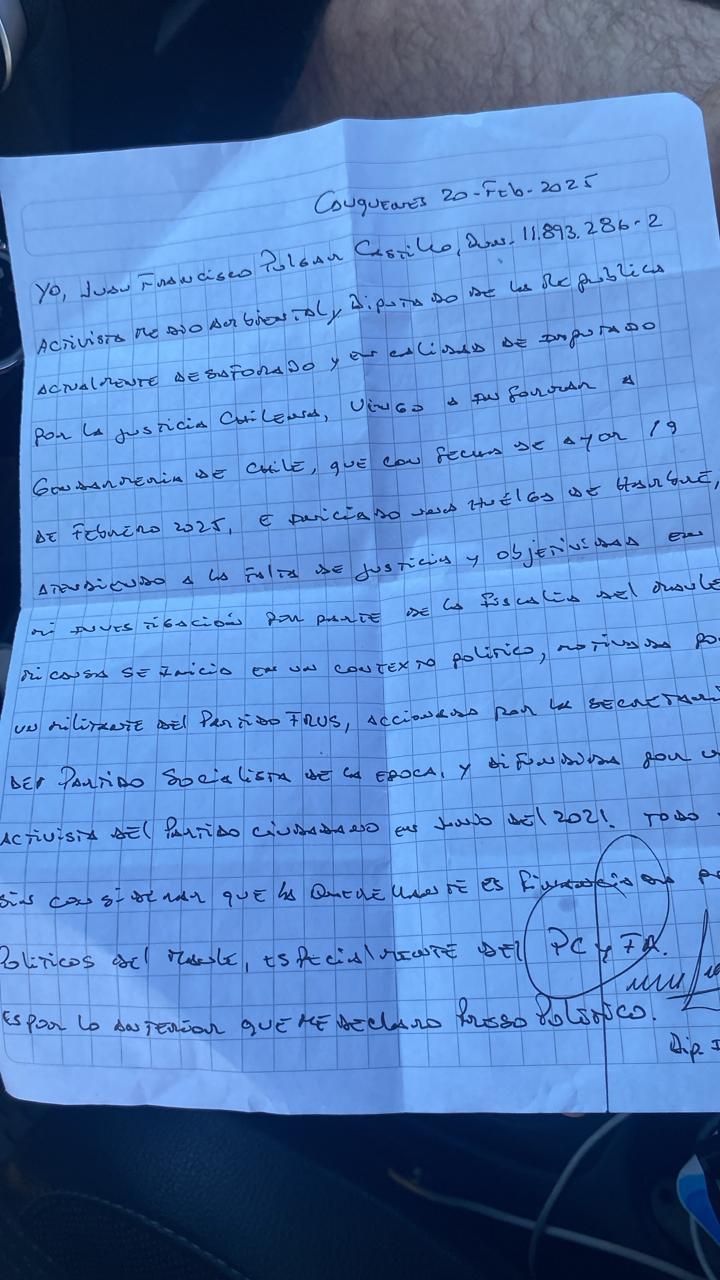 Cauquenes 20-Feb-2025
Yo, Juan Francisco Pulgar Castillo, Run. 11.893.286-2
Activista medio ambiental y Diputado de la Republica
actualmente desaforado y en calidad de imputado
por la justicia Chilena, vengo a informar a
Gendarmeria de Chile, que con fecha de ayer 19
de Febrero 2025, e iniciado una huelga de hambre,
atendiendo a la falta de justicia y objetividad en
mi investigación por parte de la fiscalia del maule
mi causa se inicia en un contexto politico, motivada por
un militante del Partido FRVS, accionada por la secretari
del Partido Socialista de la epoca, y difundida por u
activista del Partido ciudadano en Junio del 2021. Todo
sin considerar que la querellante es financia por
Politicos del maule, especialmente del PC y FA.
Es por lo anterior que me declaro Presso Politico.
Dip I